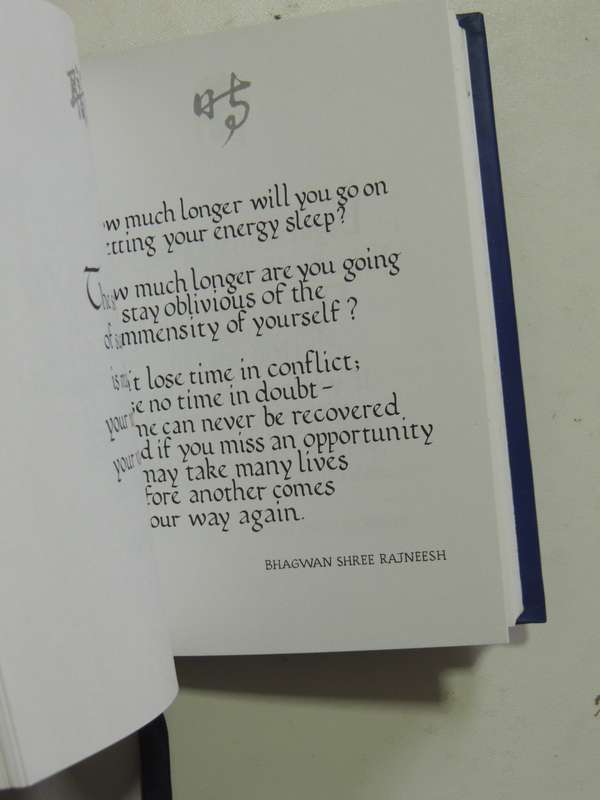 時
ow much longer will you go on
tting your energy sleep?
w much longer are you going
stay oblivious of the
mmensity of yourself?
't lose time in conflict;
e no time in doubt –
me can never be recovered
d if you miss an opportunity
may take many lives
fore another comes
our way again.
BHAGWAN SHREE RAJNEESH